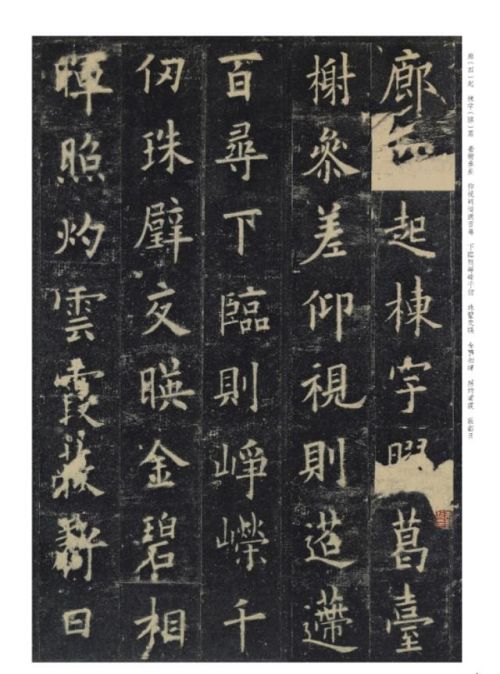 廊(四)起 棟宇(膠)葛 臺榭參差 仰視則迢遰百尋 下臨則崢嶸千仞 珠璧交暎 金碧相暉 照灼雲霞 蔽虧日
廊起棟宇葛臺
榭參差仰視則迢遰
百尋下臨則崢嶸千
仞珠璧交暎金碧相
暉照灼雲霞蔽虧日